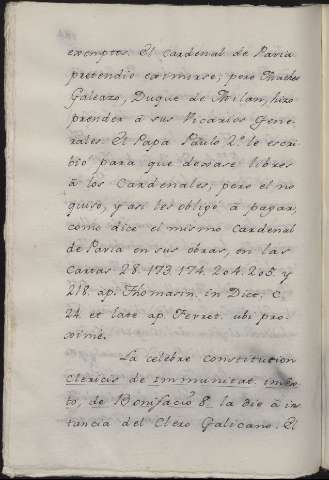 exemptos. El cardenal de Pavia
pretendio eximirse; pero
Galeazo, Duque de Milan, hizo
prender à sus Vicarios Gene-
rales. El Papa Paulo 2º le escri-
bió para que dexase libres
à los Cardenales; pero el no
quiso, y asi les obligó à pagar,
como dice el mismo Cardenal
de Pavia en sus obras, en las
Cartas 28. 173. 174. 204. 205. y
218. ap. Thomasin. in Dice. C.
24. et late ap. Ferret. ubi pro-
ximé.
La célebre constitucion
Clericis de immunitat. in
to, de Bonifacio 8º la dio à ins
tancia del Clero Galicano. El